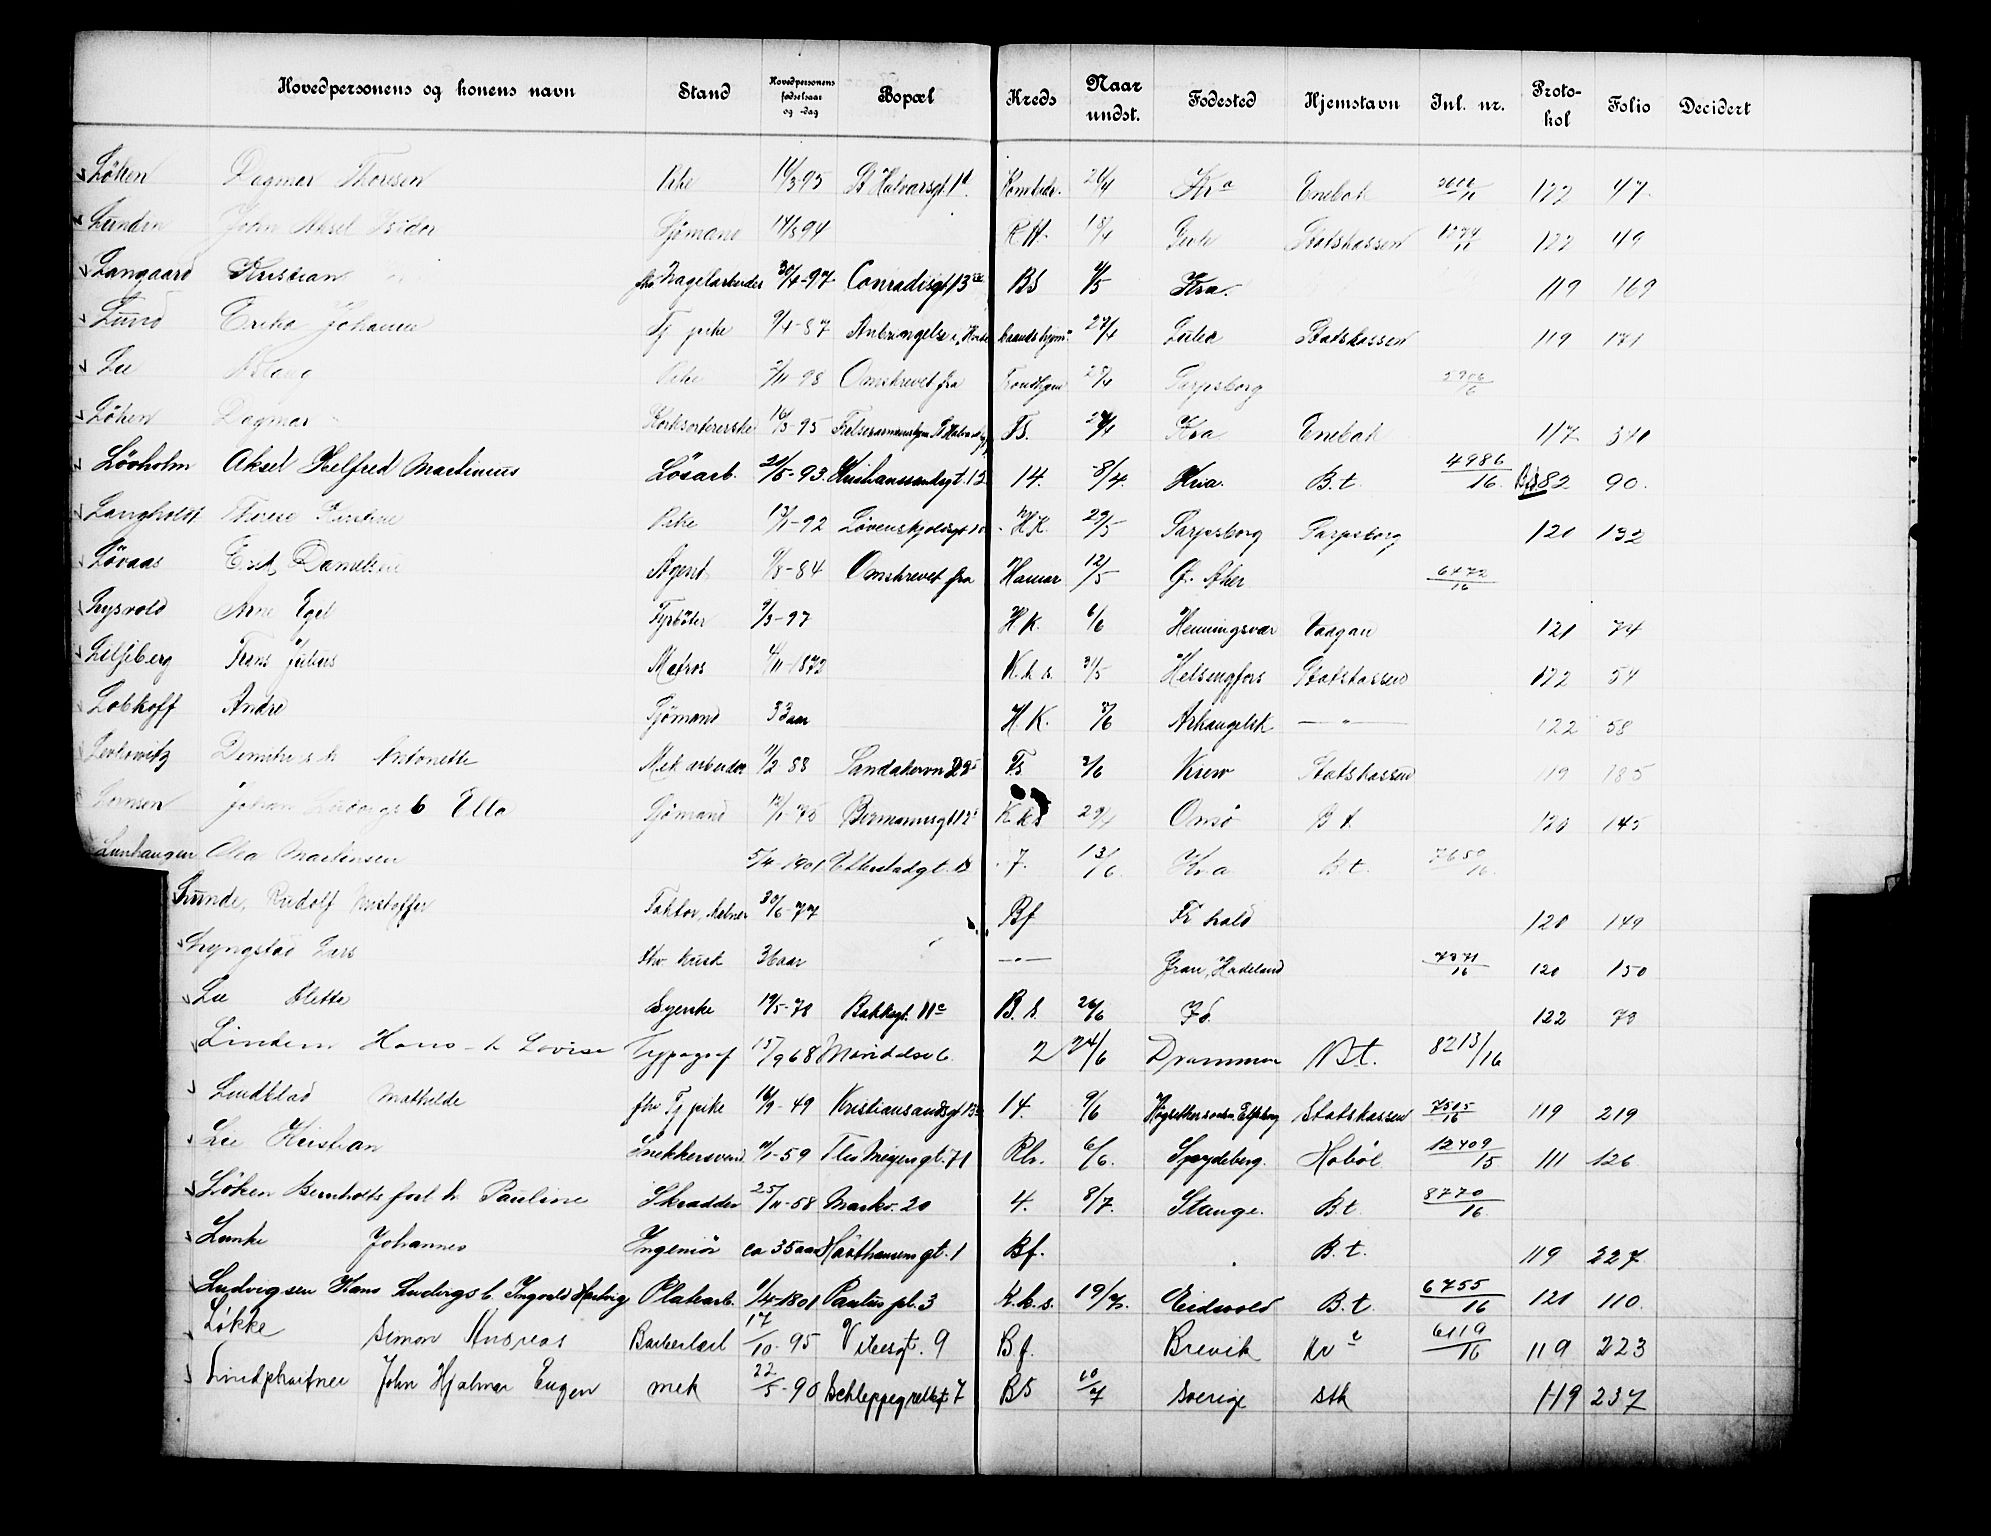 Hovedpersonens og konens navn Stand Hovedpersonens fødselsaar og -dag Bopæl Kreds Naar undst. Fødested Hjemstavn Inl. nr. Proto-kol Folio Decidert
Løken Dagmar Thoresen Pike 14/3-95 St Halvarsgt. 1d 26/4 Kra Enebak 122 47.
Lunden John Aksel Isidor Sjømand 14/3 94 R H. 18/4 Gevle Statskassen 1274/11 122 49
Langaard Kristian fhv Nagelarbeider 30/4-97 Conradisgt 13 BS 4/5 Kra. 119 169
Lund Erika Johansen Tj pike 9/1-87 Anbringelse i 27/4 Lulea Statskassen 119 171
Lie Aslaug Pike 2/11-98 Omskrevet fra Trondhjem 27/4 Sarpsborg 5906/16
Løken Dagmar Korksortererske 14/3-95 Fs. 27/4 Kra Enebak 117 340
Løvholm Aksel Helfred Martinius Løsarb. 21/5-93. Kristianssandsgt. 12 14. 8/4. Kria. B.t. 4986/16 82 90.
Langholdt Therese Pike 13/1-92 Løvenskjoldsgt 10 H K. 29/5 Sarpsborg Sarpsborg 120 132
Løvaas Agent 9/8-84 Omskrevet fra Hamar 12/5 Ø. Aker 6472/16
Lysvold Arne Egil Fyrbøter 9/3-97 H K. 6/6 Henningsvær Vaagan 121 74
Liljeberg Frans Julius Matros 4/11-1872 K.h.s. 31/5 Helsingfors Statskassen 122 54
Lobkoff Andre Sjømand 33 aar H. K. 3/6 Arkangelsk —"— 122 58
Levkowitz h Antonette Mek arbeider 11/2 88 Sandakervn 22 Fs 2/6 Krew Statskassen 119 185
Larnsen Johan Ludvigs b Ella Sjømand Bermanusgt 12 K.h.s 29/4 Omsø B t. 120 145
Lunhaugen Olea Martinsen 5/4-1901 Etterstadgt. 13 7. 13/6. Kra B.t. 7650/16.
Lunde, Rudolf Kristoffer Faktor, 30/6-77 Bf Fr hald 120 149
Lyngstad Lars fhv. kusk 36 aar —"— Gran, Hadeland 7371/16 120 150
Lie Mette Syerske 19/5-78 Bakkegt. 11c B. s. 26/6 Fd. 122 78
Lindem Hans - h Lovise Typograf 15/9 68 2 24/6 Drammen B.t. 8213/16
Lindblad Mathilde fhv Tj pike 16/9-49 Kristiansandsgt 13 14. 9/6 Statskassen 7515/16 119 219
Lie Kristian Snekkersvend 10/1-59 Ths Meyers gt. 71 Rh. 6/6. Spydeberg. Hobøl 12409/15 111 126
Løken Bernholdt forl h. Pauline Skrædder 25/11-58 Markv. 20 4. 8/7. Stange. B.t. 8770/16.
Lunke Johannes Ingeniør ca 35 aar Haxthausens gt. 1 Bf. B.t. 119 227.
Ludvigsen Hans Ludvigs b. Ingvald Hartvig Platearb. 9/4-1801 Paulus pl. 3 K.h.s. 19/7. Eidsvold B.t. 6755/16 121 110.
Løkke Simon Andreas Barberlærl 17/10-95 Vibesgt. 9 B.f. Brevik Kra 6119/16 119 223
John Hjalmar Eugen mek 22/5-90 Schleppegrellsgt 7 BS 10/7 Sverige stk 119 237